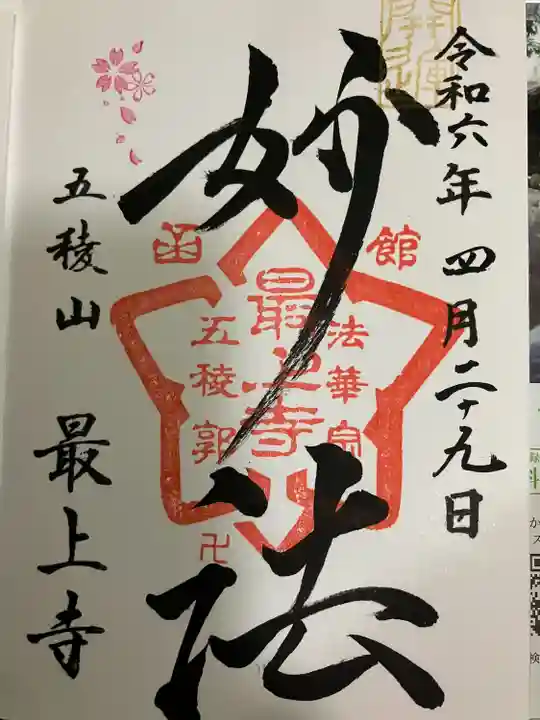 令和六年 四月二十九日
妙法
五稜山 最上寺
開運
函館
法華宗
最上寺
五稜郭
卍
か
ス
検